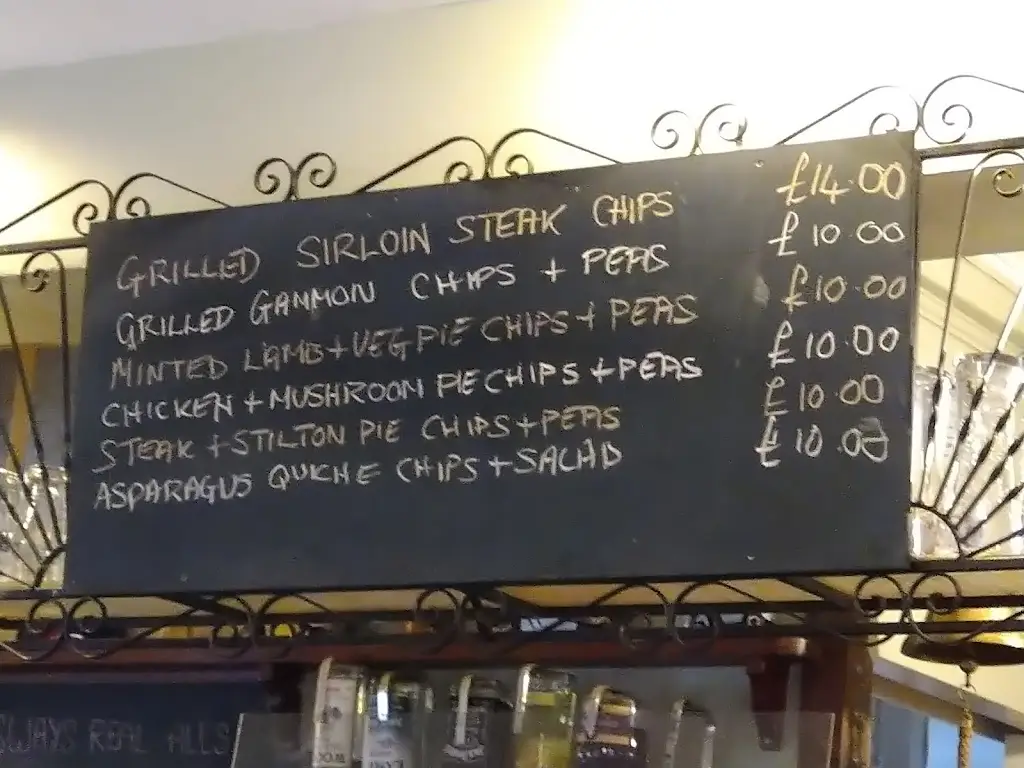 GRILLED SIRLOIN STEAK CHIPS £14.00
GRILLED GAMMON CHIPS + PEAS £10.00
MINTED LAMB+VEG PIE CHIPS+PEAS £10.00
CHICKEN+MUSHROOM PIE CHIPS+PEAS £10.00
STEAK+STILTON PIE CHIPS+PEAS £10.00
ASPARAGUS QUICHE CHIPS+SALAD £10.00
REAL ALES